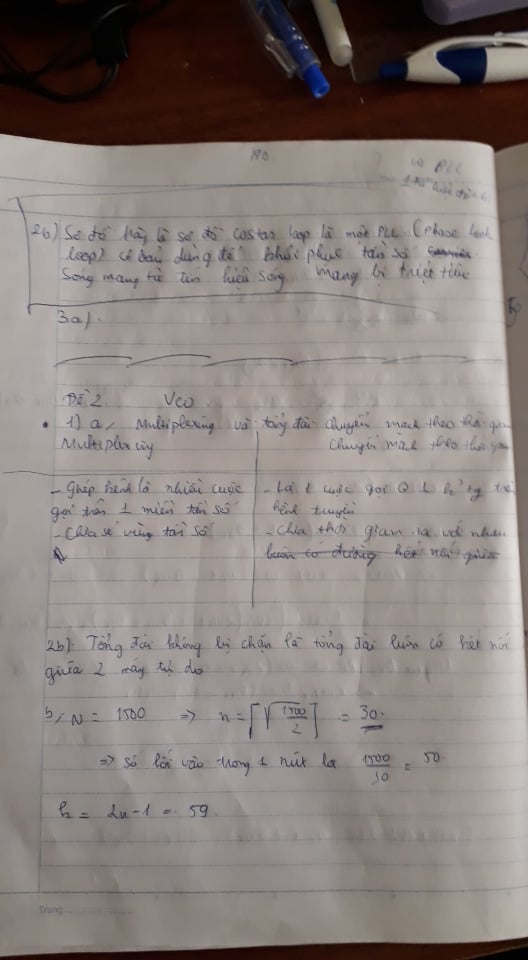 2b) Sơ đồ này là sơ đồ Costar loop là một PLL (phase lock
loop) cơ bản dùng để khôi phục tần số
Sóng mang từ tín hiệu sóng mang bị triệt tiêu
3a).
Đề 2. Vco
1) a, Multiplexing và tổng đài chuyển mạch theo thời gian
Multiplexing chuyển mạch theo thời gian
- Ghép kênh là nhiều cuộc
gọi trên 1 miền tần số
- Chia sẻ vùng tần số
- Là 1 cuộc gọi
kênh truyền
- Chia thời gian ra với nhau
luôn có đường kết nối giữa
2b). Tổng đài không bị chặn là tổng đài luôn có kết nối
giữa 2 máy tự do
b, N = 1500 => n = ⌈√(1500/2)⌉ = 30.
=> số lối vào trong 1 nút là 1500/30 = 50
k = 2n-1 = 59.
Trang